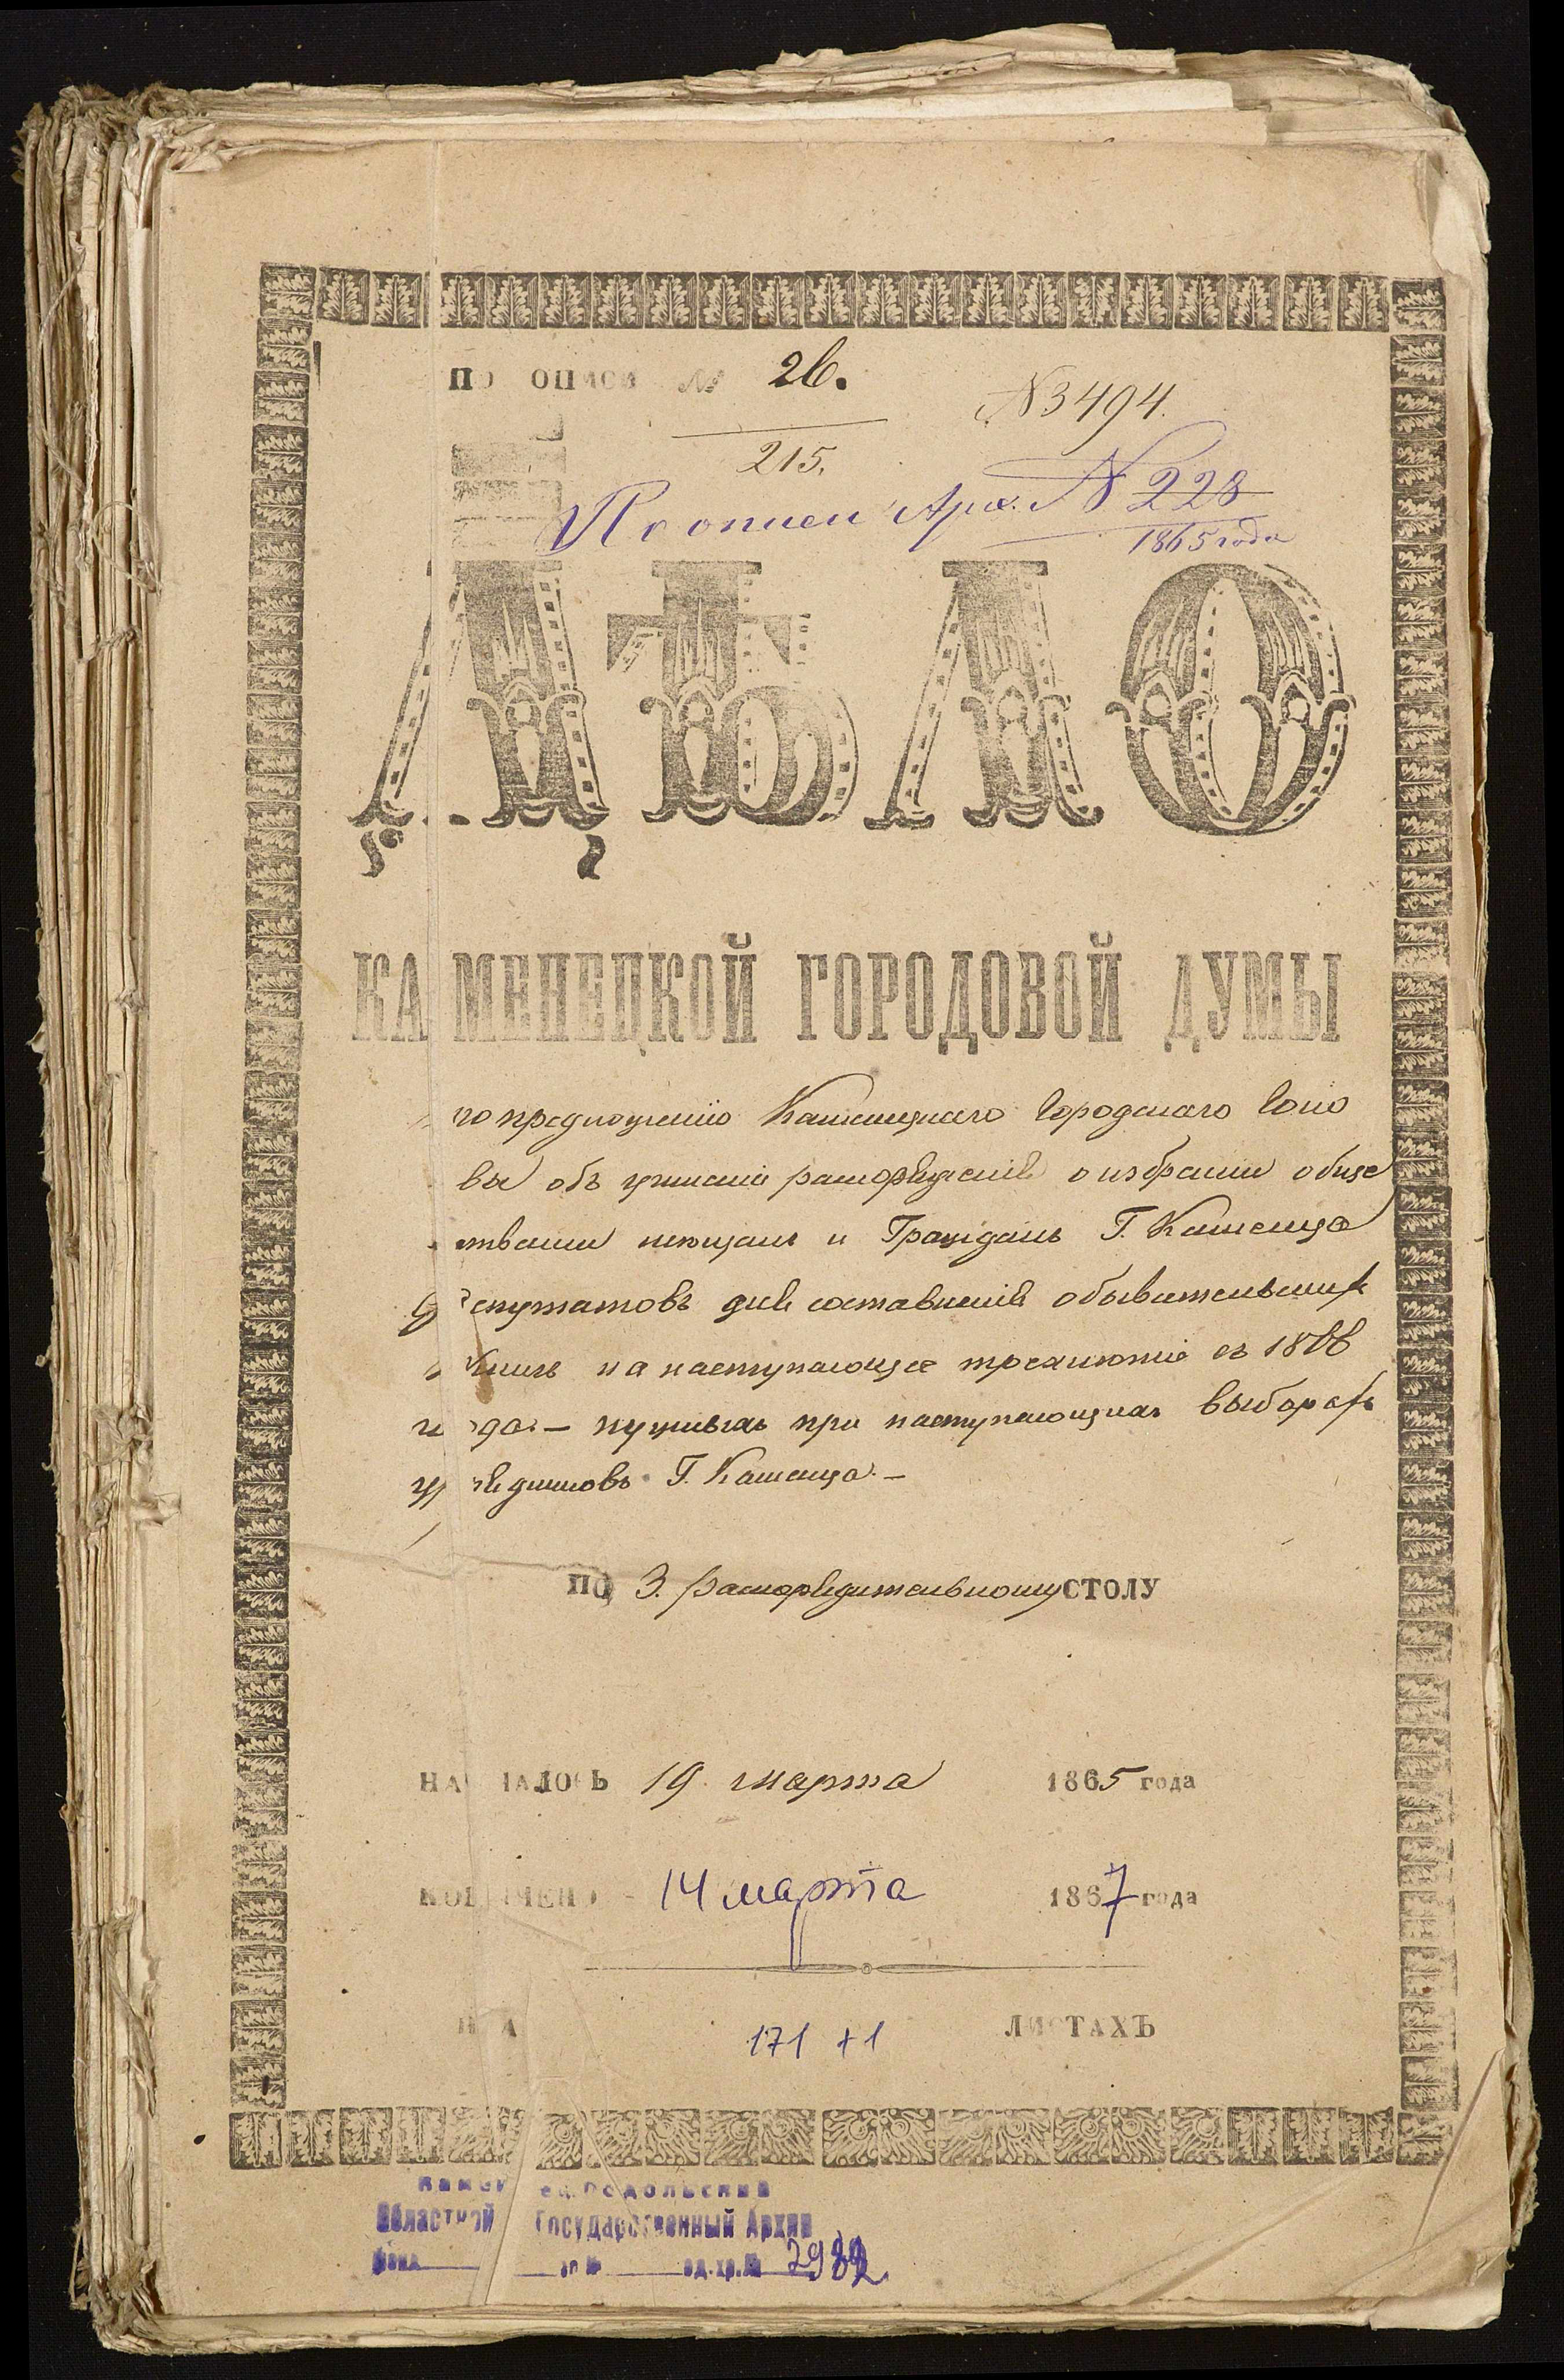 ПО ОПИСИ № 26.
№ 3494.
215.
По описи Арх. № 228
1865 года
ДѢЛО
КАМЕНЕЦКОЙ ГОРОДОВОЙ ДУМЫ
по предложенію Каменецкаго Городскаго Голо
вы объ учиненіи распоряженія о избраніи обще
ствами мещанъ и Гражданъ Г. Каменца
депутатовъ для составленія обывательскихъ
книгъ на наступающее трехлютіе съ 1866
года – нужныхъ при наступающихъ выборахъ
урядниковъ Г. Каменца. –
ПО 3. распорядительному СТОЛУ
НАЧАЛОСЬ 19 марта 1865 года
КОНЧЕНО - 14 марта 1867 года
НА 171 + 1 ЛИСТАХЪ
Каменец-Подольский
Областной Государственный Архив
Фонд оп № ед.хр.№ 2982